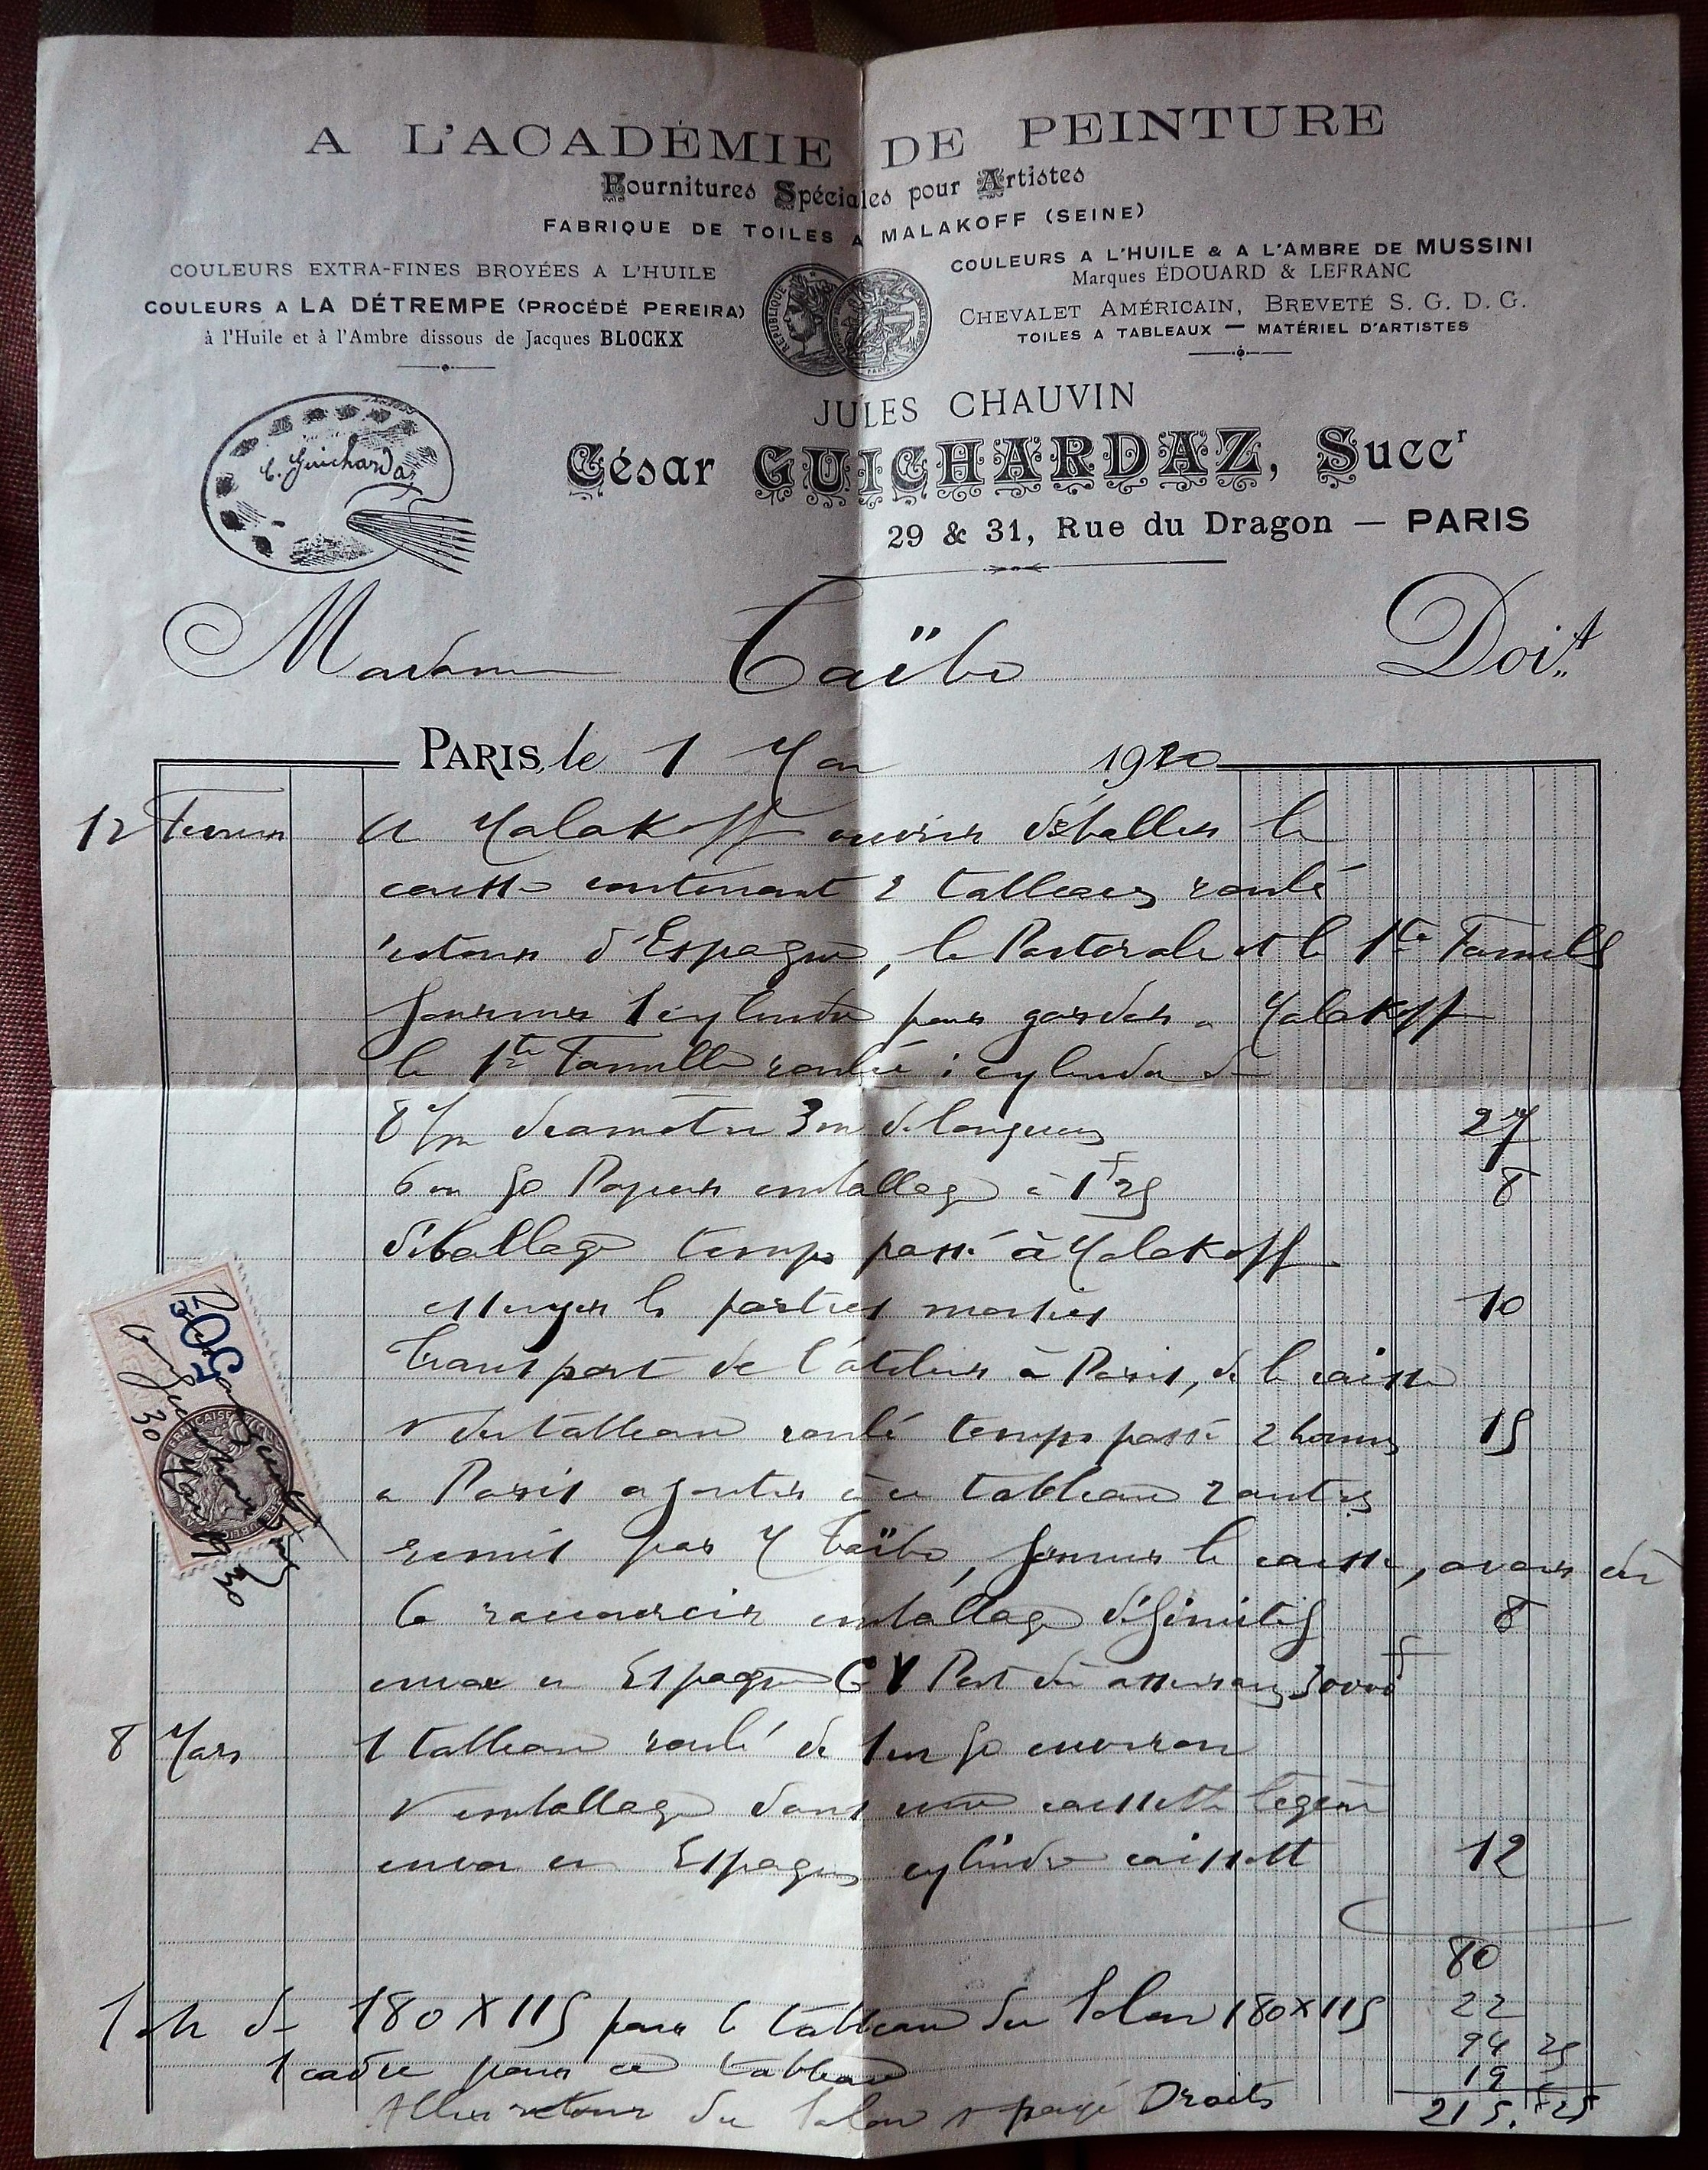 A L'ACADÉMIE DE PEINTURE
Fournitures Spéciales pour Artistes
FABRIQUE DE TOILES A MALAKOFF (SEINE)
COULEURS EXTRA-FINES BROYÉES A L'HUILE
COULEURS A LA DÉTREMPE (PROCÉDÉ PEREIRA)
à l'Huile et à l'Ambre dissous de Jacques BLOCKX
COULEURS A L'HUILE & A L'AMBRE DE MUSSINI
Marques ÉDOUARD & LEFRANC
CHEVALET AMÉRICAIN, BREVETÉ S. G. D. G.
TOILES A TABLEAUX — MATÉRIEL D'ARTISTES
JULES CHAUVIN
C. Guichardaz
César GUICHARDAZ, Succr
29 & 31, Rue du Dragon — PARIS
Madame Taïbo Doit
PARIS, le 1 Mai
12 Fevrier A Malakoff ouvrir déballer la
caisse contenant 2 tableaux roulé
retour d'Espagne, la Pastorale et la 1te Famille
fournir 1 cylindre pour garder a Malakoff
la 1te Famille roulé 1 cylindre de
8 c/m diametre 3m de longueur 27
6m 50 Papier emballage à 1f25 8
déballage temps passé à Malakoff
essuyer les parties moisies 10
Transport de l'atelier à Paris, de la caisse
et du tableau roulé temps passé 2 heures 15
a Paris ajouter à ce tableau 2 autres
remis par M Taïbo, fermer la caisse, avoir du
la raccourcir emballage définitif 8
envoi en Espagne G V Port du assurance 30000f
8 Mars 1 tableau roulé de 1m 50 environ
et emballage dans une caissette légère
envoi en Espagne cylindre caissette 12
80
1 ch de 180 X 115 pour le tableau du Salon 180 X 115 22
1 cadre pour ce tableau 94 25
Aller retour du Salon et payé Droits 19
215.25